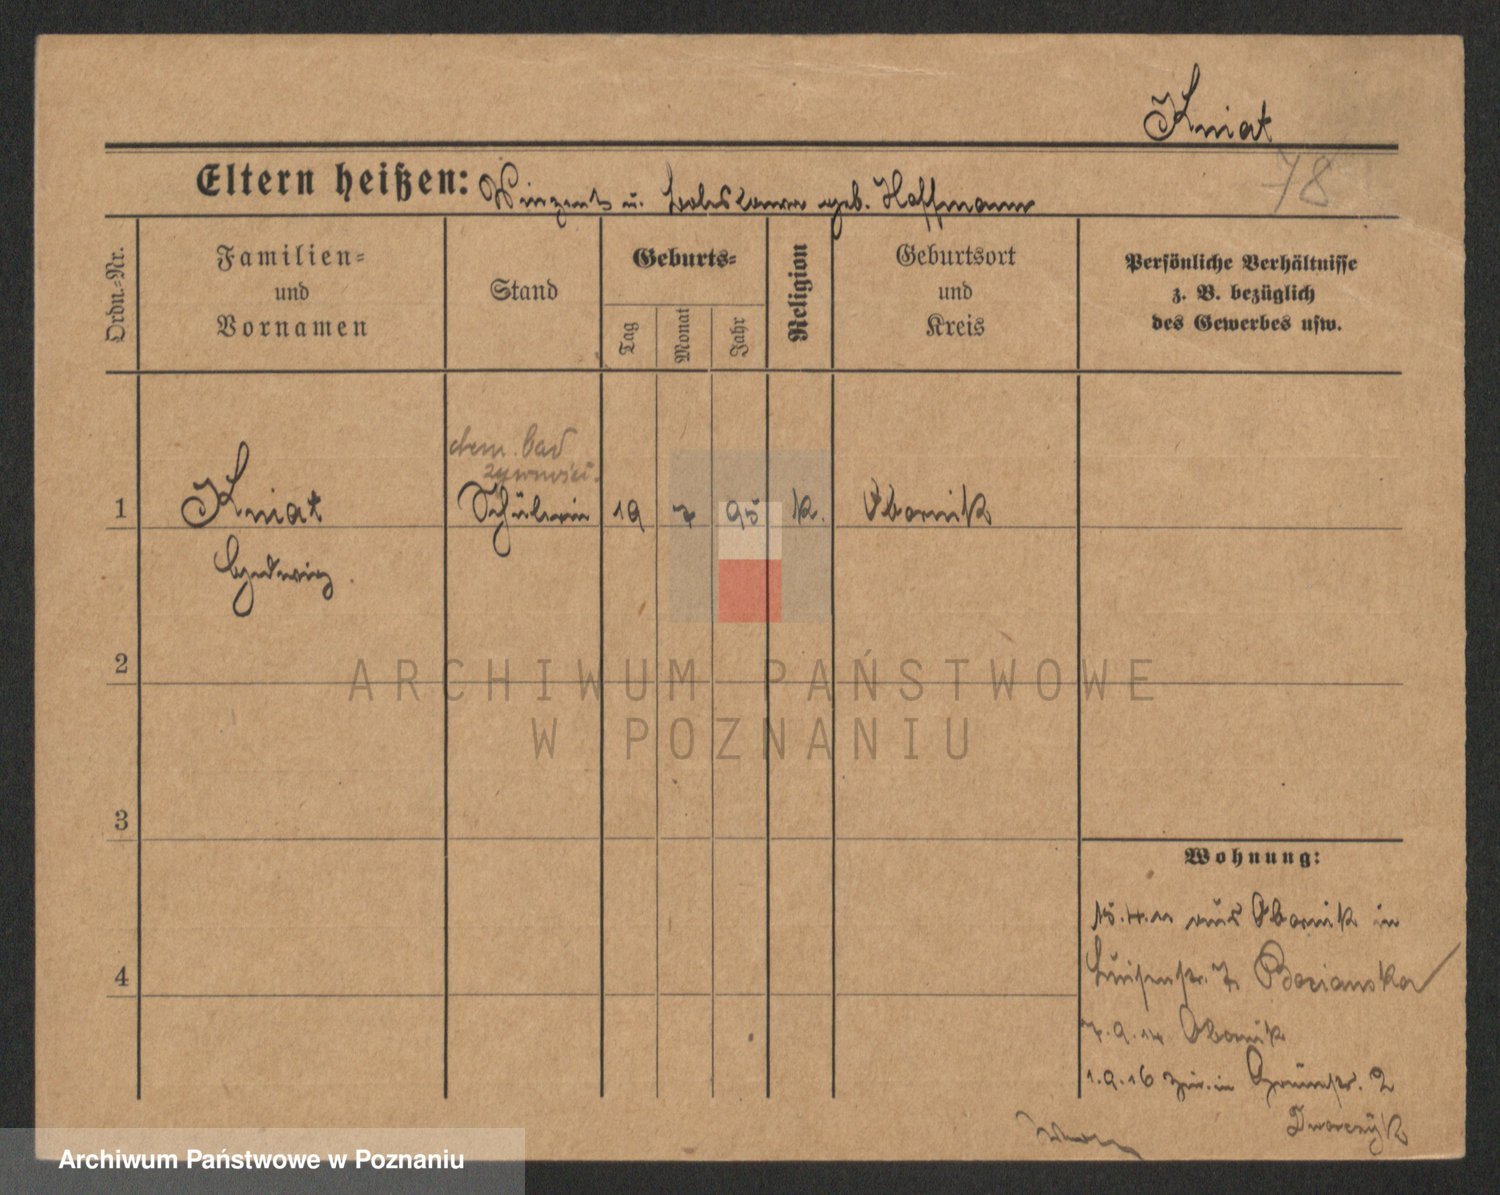 Kniat
78
Eltern heißen: Vinzent u. geb. Hoffmann
Ordn.-Nr.
Familien-
und
Vornamen
Stand
Geburts-
Tag
Monat
Jahr
Religion
Geburtsort
und
Kreis
Persönliche Verhältnisse
z. B. bezüglich
des Gewerbes usw.
chem. bad
żywności.
1 Kniat Schülerin 19 7 95 k. Obornik
Hedwig.
2
3
4
Wohnung:
15.4.11 aus Obornik in
Luisenstr. 7
7.9.14 Obornik
1.9.16 zur. in Grünstr. 2
ARCHIWUM PAŃSTWOWE
W POZNANIU
Archiwum Państwowe w Poznaniu